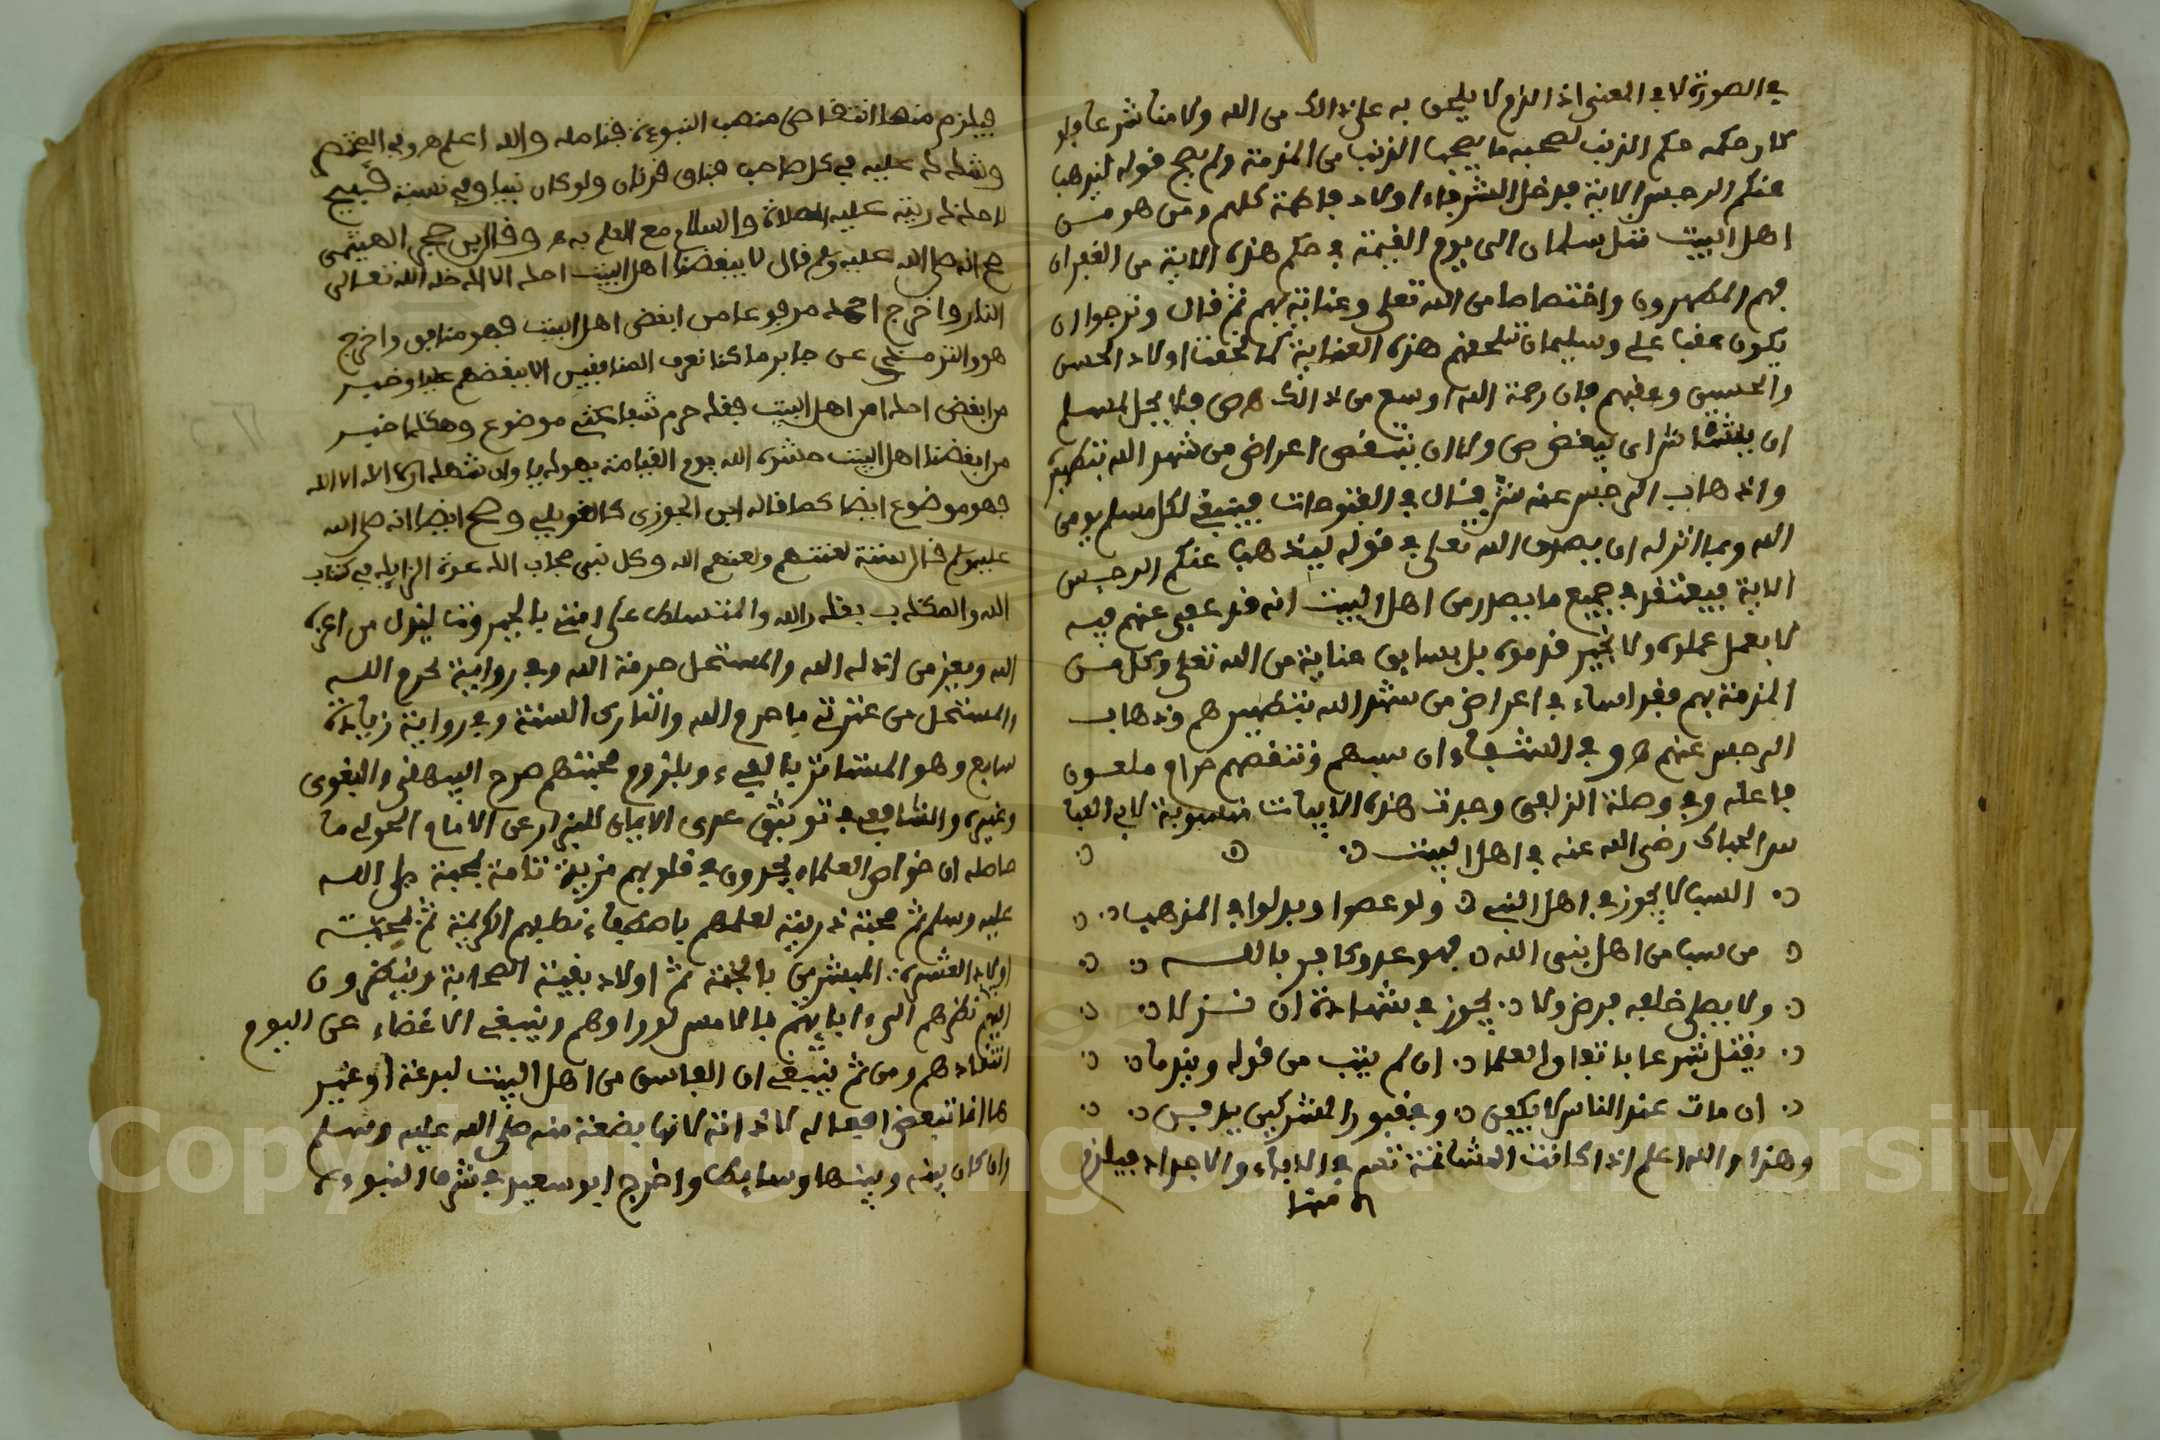 في الصورة لا في المعنى اذ الذم لا يلحق به على ذالك من الله ولا منا شرعا ولو
كان حكمه حكم الذنب لصحبه ما يصحب الذنب من المذمة ولم يصح قوله ليذهب
عنكم الرجس الاية فدخل الشرفاء اولاد فاطمة كلهم ومن هو من
اهل البيت مثل سلمان الى يوم القيمة في حكم هذه الاية من الغفران
فهم المطهرون واختصاصا من الله تعلى وعناية بهم ثم قال ونرجوا ان
يكون عقب على وسليمان تلحقهم هذه العناية كما لحقت اولاد الحسن
والحسين وعقبهم فان رحمة الله اوسع من ذالك فلا يحل لمسلم
ان ولا ان ينتقص اعراض من شهد الله بتطهيره
واذهاب الرجس عنه ثم قال في الفتوحات فينبغي لكل مسلم يومن
الله وبما انزله ان يصدق الله تعلى في قوله ليذهب عنكم الرجس
الاية فيعتقد في جميع ما يصدر من اهل البيت انه قد عفى عنهم فيه
لا بعمل عملوه ولا بخير قدموه بل بسابق عناية من الله تعلى وكل من
المذمة بهم فقد اساء في اعراض من شهد الله بتطهيرهم وذهاب
الرجس عنهم وفي الشفاء ان سبهم وتنقصهم حرام ملعون
فاعله وفي وصلة الزلفى وجدت هذه الابيات منسوبة لابي العبا
س رضي الله عنه في اهل البيت
السب لا يجوز في اهل النبي ولو عصوا وبدلوا في المذهب
من سب من اهل بنى الله فهو عدو كافر بالله
ولا يصلى خلفه فرض ولا يجوز في شهادة ان نزلا
يقتل شرعا باتفاق العلما ان لم يتب من قوله ويندما
ان مات عند الناس لا يكفن وفي قبور المشركين يدفن
وهذا والله اعلم اذا كانت المشاتمة تعم في الاباء والاجداد فيلزم
منها
فيلزم منها انتقاص منصب النبوءة فتامله والله اعلم وفي المختصر
وشدد عليه في كل صاحب فندق قرنان ولو كان نبيا وفي نسبة قبيح
لاحد ذريته عليه الصلاة والسلام مع العلم به وقال ابن حجر الهيثمي
صح انه صلى الله عليه وسلم قال لا يبغضنا اهل البيت احد الا ادخله الله تعالى
النار واخرج احمد مرفوعا من ابغض اهل البيت فهو منافق واخرج
هو والترمذي عن جابر ما كنا نعرف المنافقين الا ببغضهم عليا وخبر
من ابغض احدا من اهل البيت فقد حرم شفاعتي موضوع وهكذا خبر
من ابغضنا اهل البيت حشره الله يوم القيامة يهوديا وان شهد ان لا اله الا الله
فهو موضوع ايضا كما قاله ابن الجوزي كالعقيلي وصح ايضا انه صلى الله
عليه وسلم قال ستة لعنتهم ولعنهم الله وكل نبي مجاب الدعوة الزايد في كتاب
الله والمكذب بقدر الله والمتسلط على امتي بالجبروت ليذل من اعزه
الله ويعز من اذله الله والمستحل حرمة الله وفي رواية لحرم الله
والمستحل من عترتي ما حرم الله والتارك السنة وفي رواية زيادة
سابع وهو المستاثر بالفيء وبلزوم محبتهم صرح البيهقي والبغوي
وغيره والشافعي في توثيق عرى الايمان للبارزي عن الامام الحرالي ما
حاصله ان خواص العلماء يجدون في قلوبهم مزية تامة لمحبة صلى الله
عليه وسلم ثم محبة ذريته لعلمهم باصطفاء نطفهم الكريمة ثم لمحبة
اولاد العشرة المبشرين بالجنة ثم اولاد بقية الصحابة وينظرون
اليهم نظرهم الى ابايهم بالامس لو راوهم وينبغي الاغضاء عن اليوم
انتقادهم ومن ثم ينبغي ان الفاسق من اهل البيت لبدعة او غير
ها انما تبغض افعاله لا ذاته لانها بضعة منه صلى الله عليه وسلم
وان كان بينه وبينها وسايط واخرج ابو سعيد في شرف النبوءة
Copyright © King Saud University